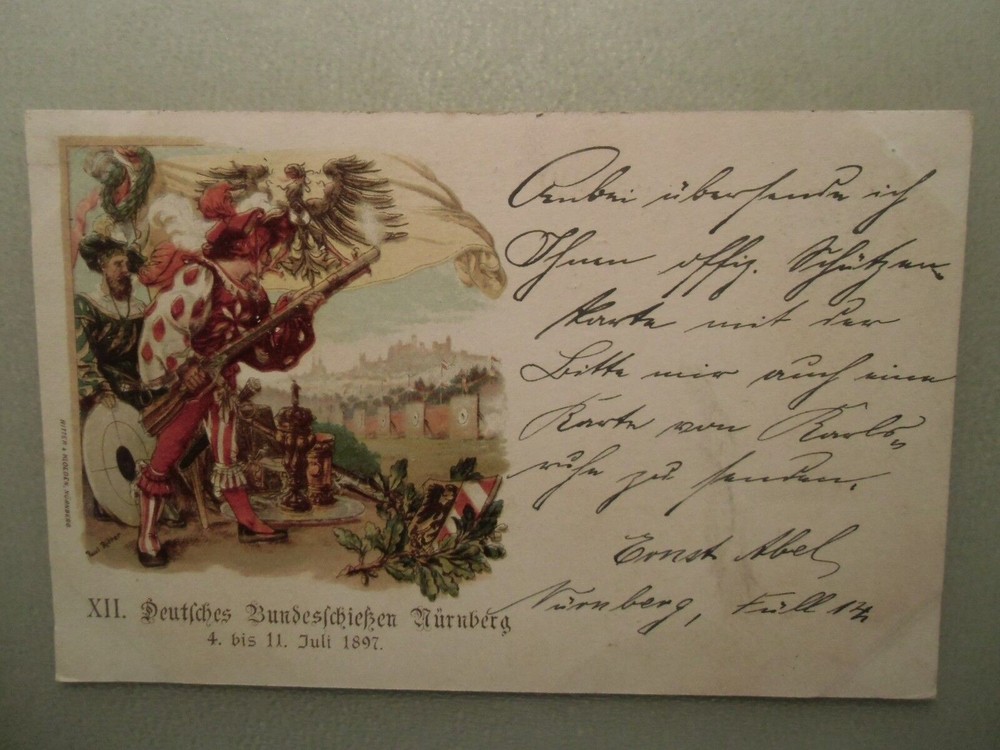 Anbei übersende ich
Ihnen offiz. Schützen-
karte mit der
Bitte mir auch eine
Karte von Karls-
ruhe zu senden.
Ernst Abel
Nürnberg, Füll
XII. Deutsches Bundesschießen Nürnberg
4. bis 11. Juli 1897.